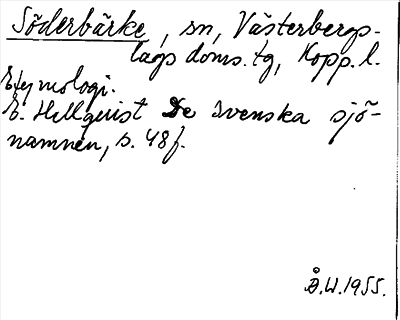 Söderbärke, sn, Västerbergs-
lags doms.tg, Kopp. l.
Etymologi.
E. Hellquist De svenska sjö-
namnen, s. 48f.
Å.W.1955.